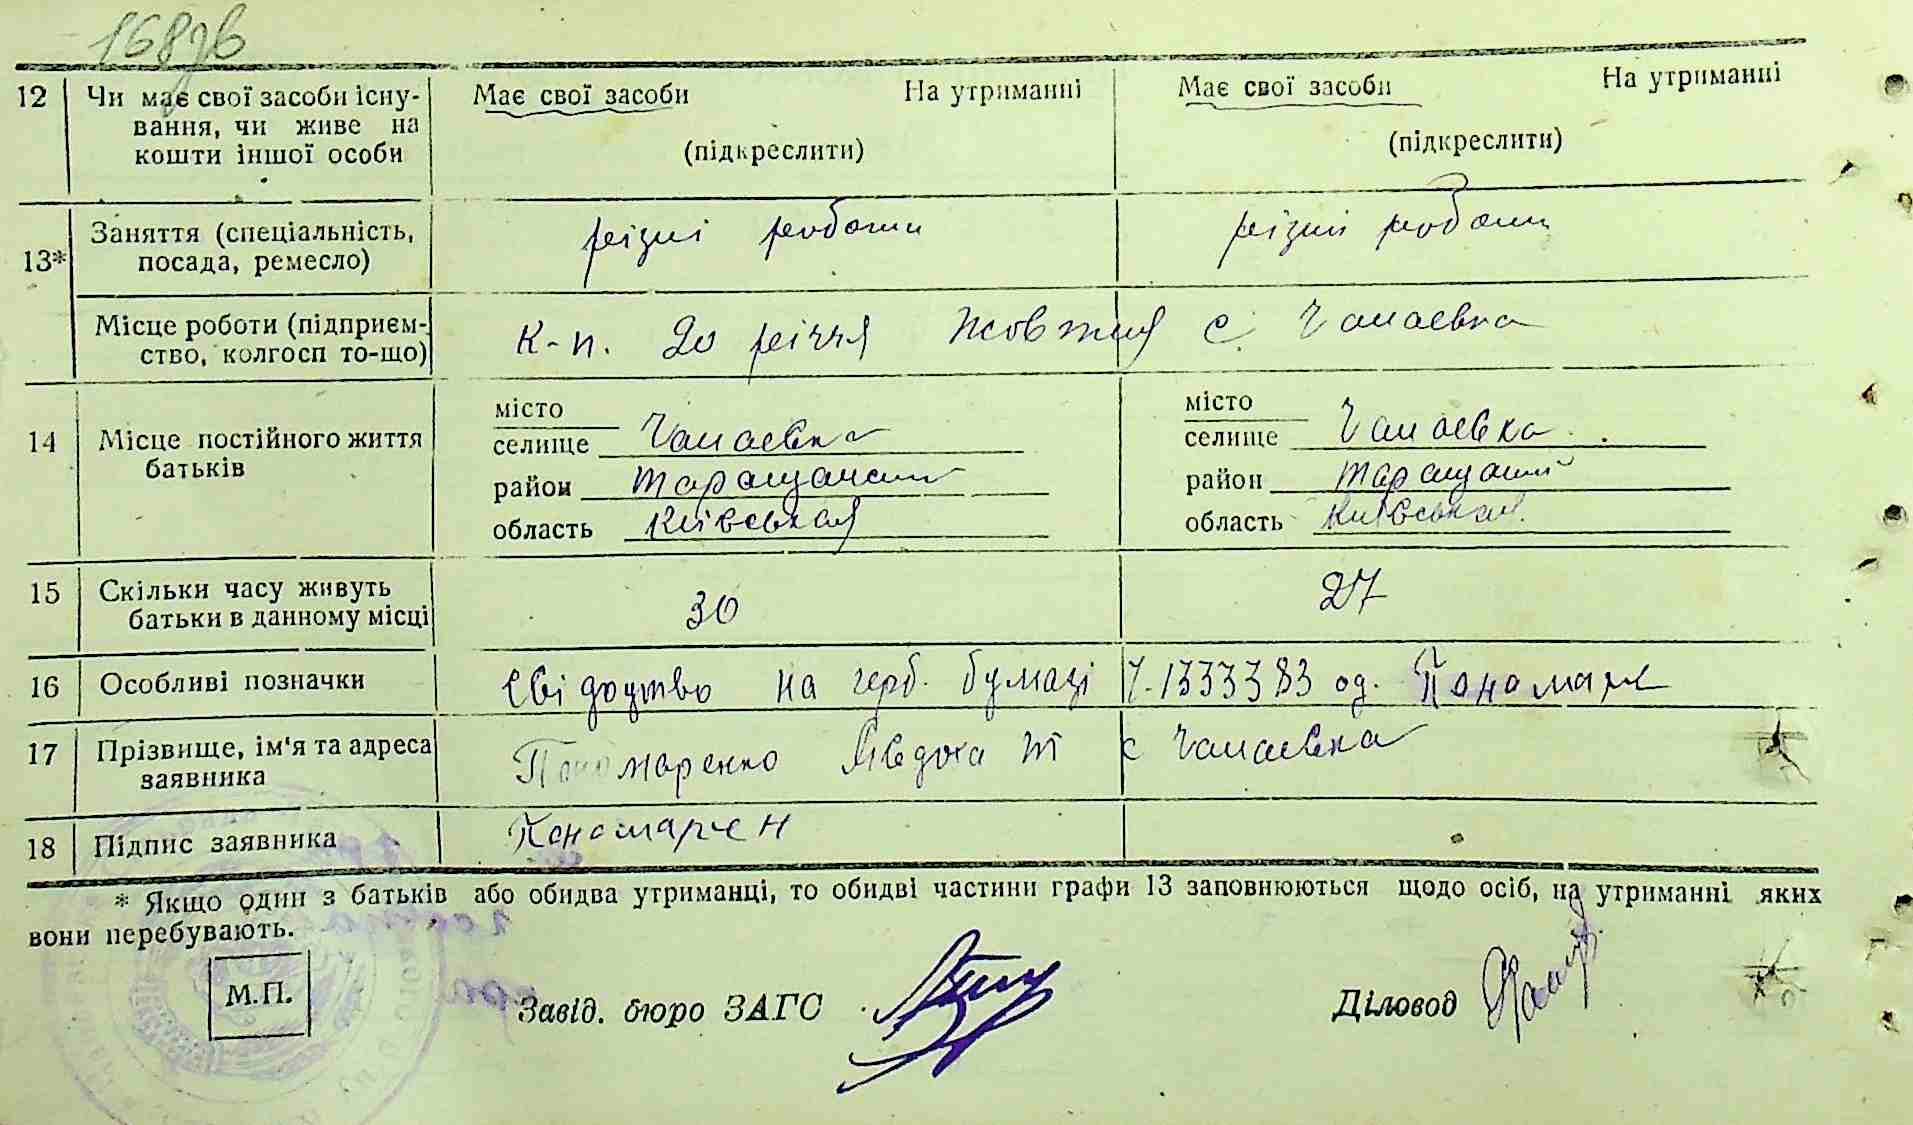 168зв
12 Чи має свої засоби існу- Має свої засоби На утриманні Має свої засоби На утриманні
вання, чи живе на
кошти іншої особи (підкреслити) (підкреслити)
13* Заняття (спеціальність, різні роботи різні роботи
посада, ремесло)
Місце роботи (підприєм- К-п. 20 річчя Жовтня с. Чапаєвка
ство, колгосп то-що)
14 Місце постійного життя батьків
місто місто
селище Чапаєвка селище Чапаєвка
район Таращанський район Таращаний
область Київськая область Київськая
15 Скільки часу живуть 30 27
батьки в данному місці
16 Особливі позначки Свідоцтво на герб. бумазі 1333383 од. Пономаре
17 Прізвище, ім'я та адреса Пономаренко Явдоха Т с Чапаєвка
заявника
18 Підпис заявника Пономарен
* Якщо один з батьків або обидва утриманці, то обидві частини графи 13 заповнюються щодо осіб, на утриманні яких
вони перебувають.
М.П. Завід. бюро ЗАГС Діловод